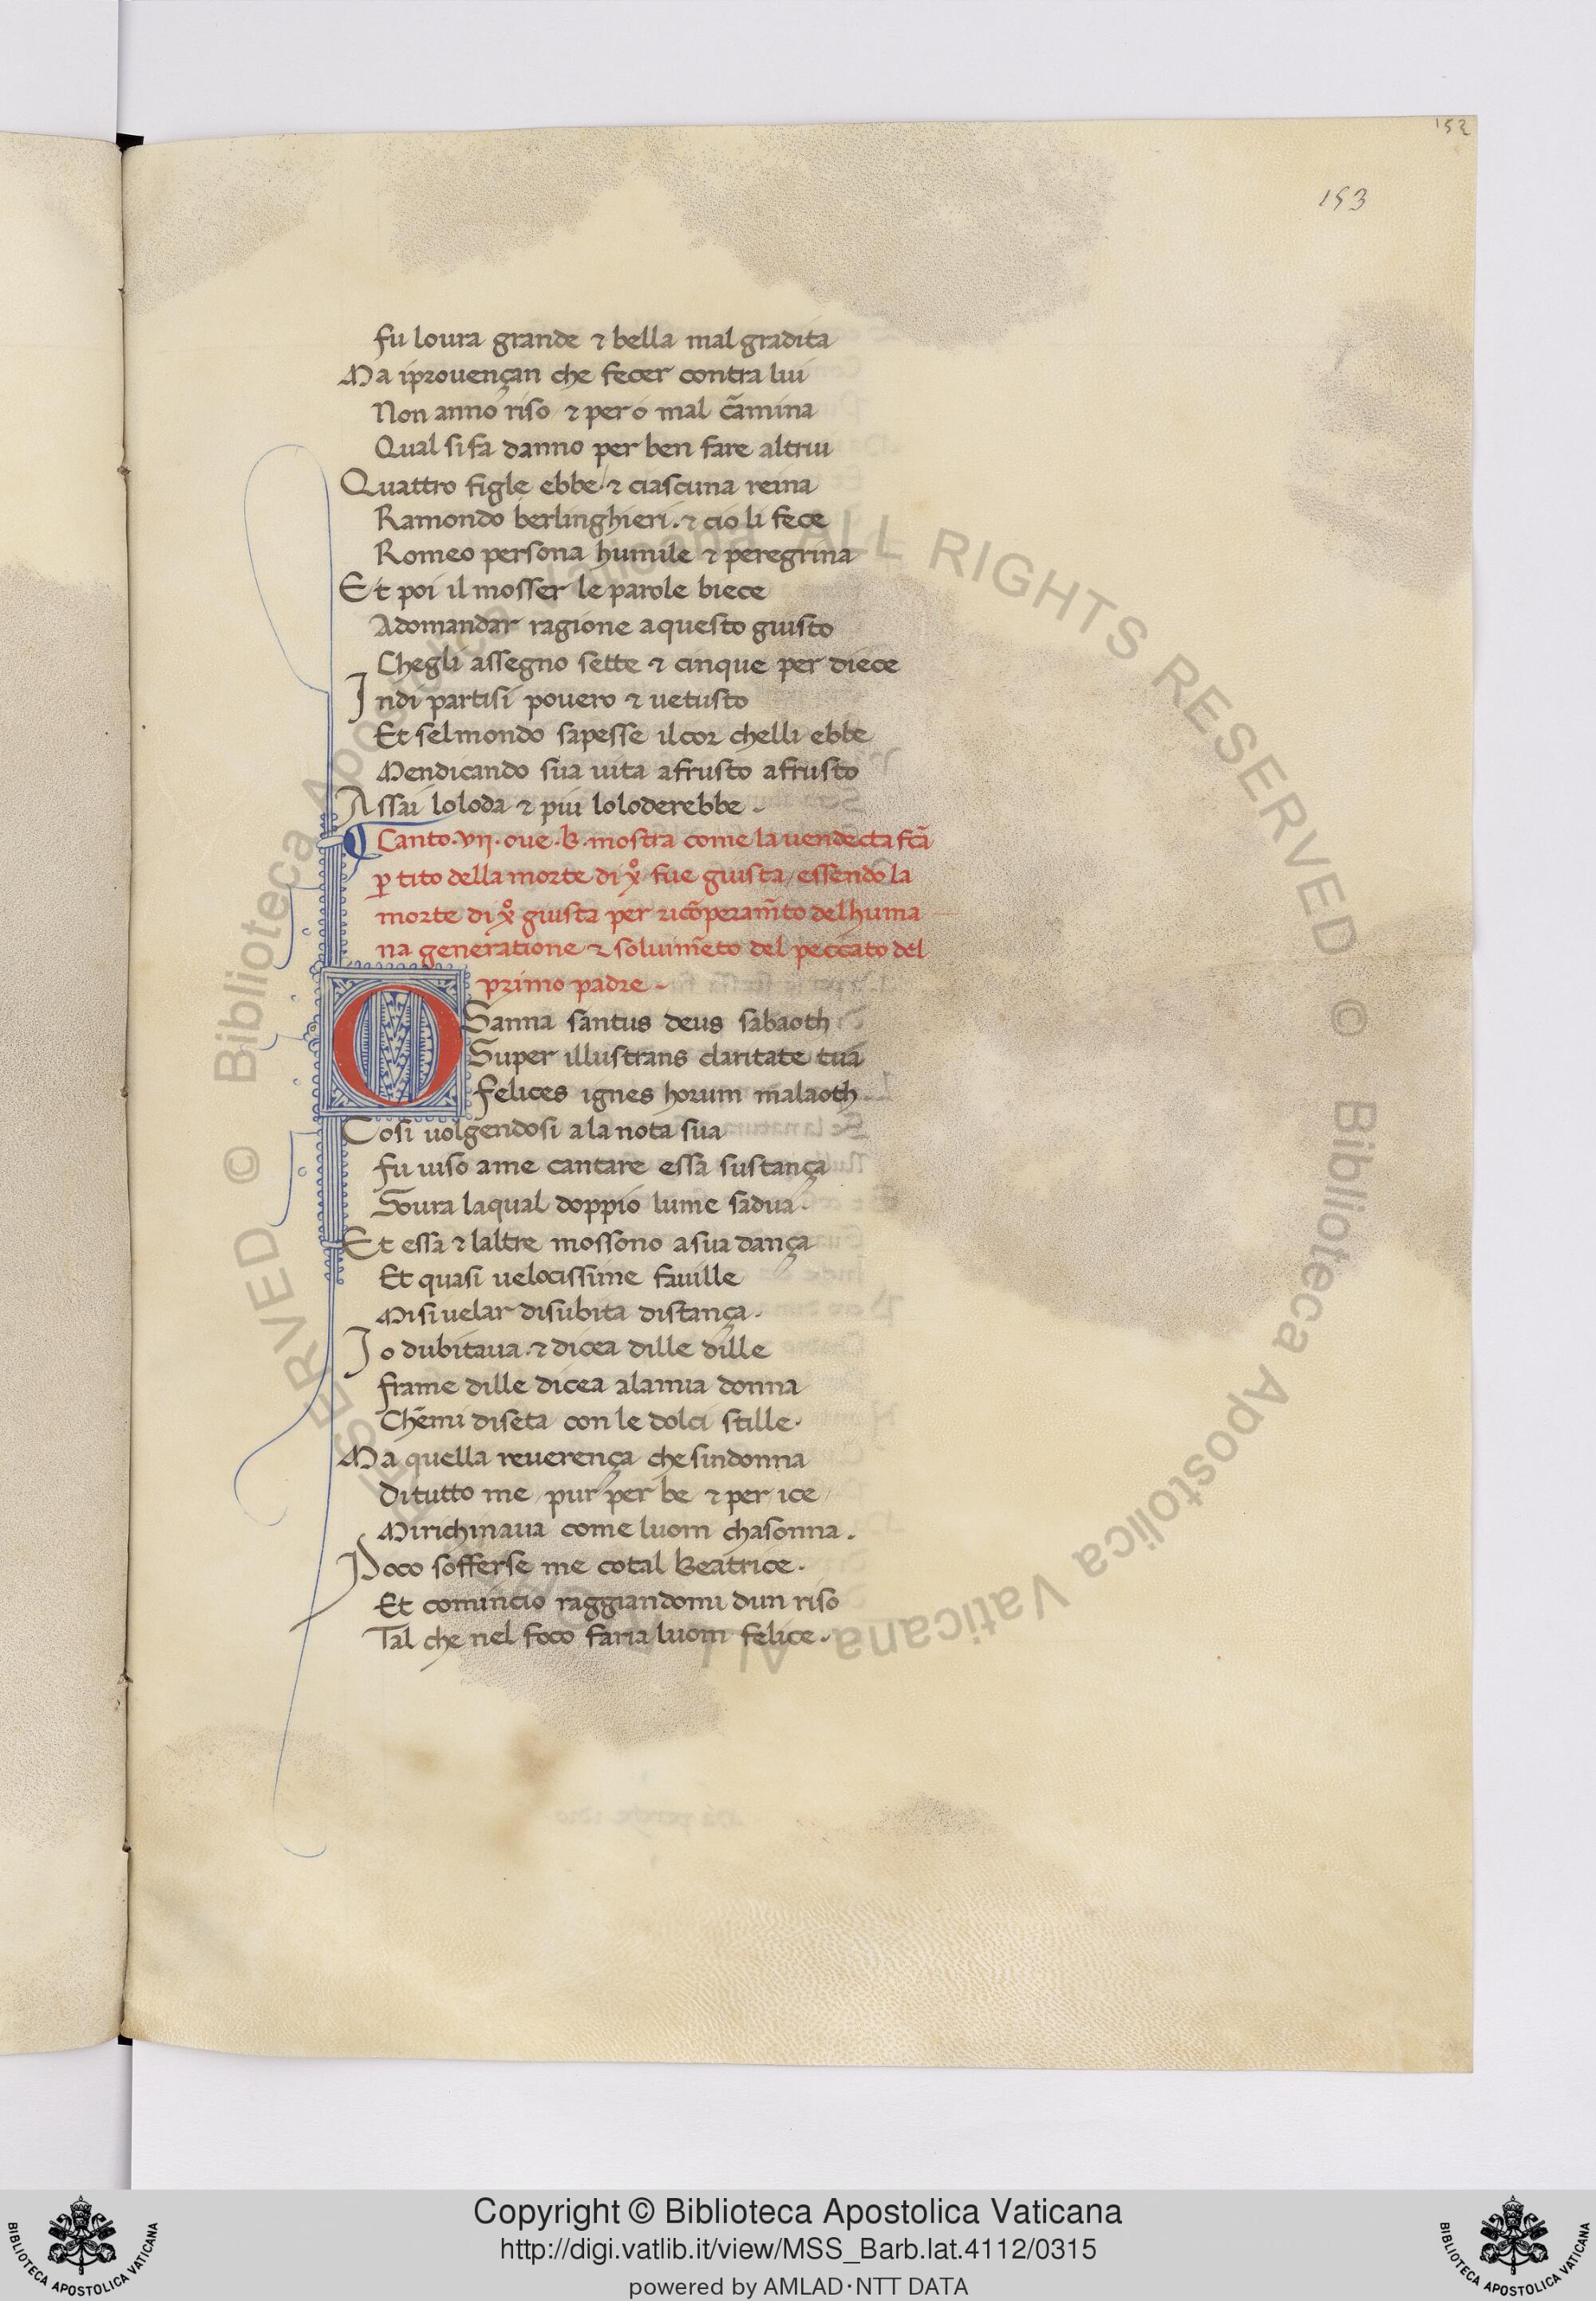 152
153
fu loura grande ⁊ bella mal gradita
Ma iprouençan che fecer contra lui
Non anno riso ⁊ pero mal cãmina
Qual si fa danno per ben fare altrui
Quattro figle ebbe ⁊ ciascuna reina
Ramondo berlinghieri. ⁊ cio li fece
Romeo persona humile ⁊ peregrina
Et poi il mosser le parole biece
Adomandar ragione aquesto giusto
Chegli assegno sette ⁊ cinque per diece
Indi partisi pouero ⁊ uetusto
Et selmondo sapesse ilcor chelli ebbe
Mendicando sua uita afrusto afrusto
Assai loloda ⁊ piu loloderebbe.
Canto.vii.oue.b.mostra come la uendecta fcã
ꝑ tito della morte di xp̊ fue giusta/essendo la
morte di xp̊ giusta per ricõperam̃to delhuma
na generatione ⁊ soluim̃eto del peccato del
primo padre.
OSanna santus deus sabaoth
Super illustrans claritate tua
felices ignes horum malaoth.
Cosi uolgendosi a la nota sua
fu uiso ame cantare essa sustança
Soura laqual doppio lume sadua.
Et essa ⁊ laltre mossono asua dança
Et quasi uelocissime fauille
Misi uelar disubita distança.
Io dubitaua. ⁊ dicea dille dille
frame dille dicea alamia donna
Chẽmi diseta con le dolci stille.
Ma quella reuerença che sindonna
Di tutto me/pur per be ⁊ per/ice/
Mirichinaua come luom chasonna.
Poco sofferse me cotal Beatrice.
Et comincio raggiandomi dun riso
Tal che nel foco faria luom felice.
© Biblioteca Apostolica Vaticana ALL RIGHTS RESERVED © Biblioteca Apostolica Vaticana ALL RIGHTS RESERVED
Copyright © Biblioteca Apostolica Vaticana
http://digi.vatlib.it/view/MSS_Barb.lat.4112/0315
powered by AMLAD·NTT DATA
BIBLIOTECA APOSTOLICA VATICANA
BIBLIOTECA APOSTOLICA VATICANA